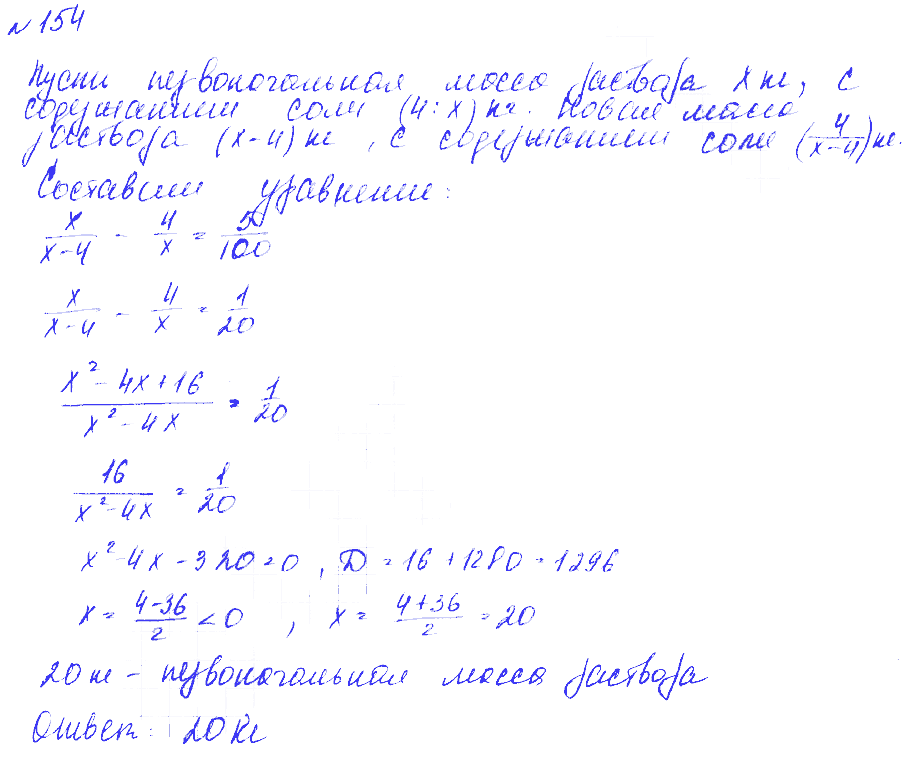 № 154
Пусть первоначальная масса раствора x кг, с
содержанием соли (4 : x) кг. Новая масса
раствора (x-4) кг, с содержанием соли (4/(x-4)) кг.
Составим уравнение:
x/(x-4) - 4/x = 5/100
x/(x-4) - 4/x = 1/20
(x² - 4x + 16)/(x² - 4x) = 1/20
16/(x² - 4x) = 1/20
x² - 4x - 320 = 0, D = 16 + 1280 = 1296
x = (4-36)/2 < 0, x = (4+36)/2 = 20
20 кг - первоначальная масса раствора
Ответ: 20 кг